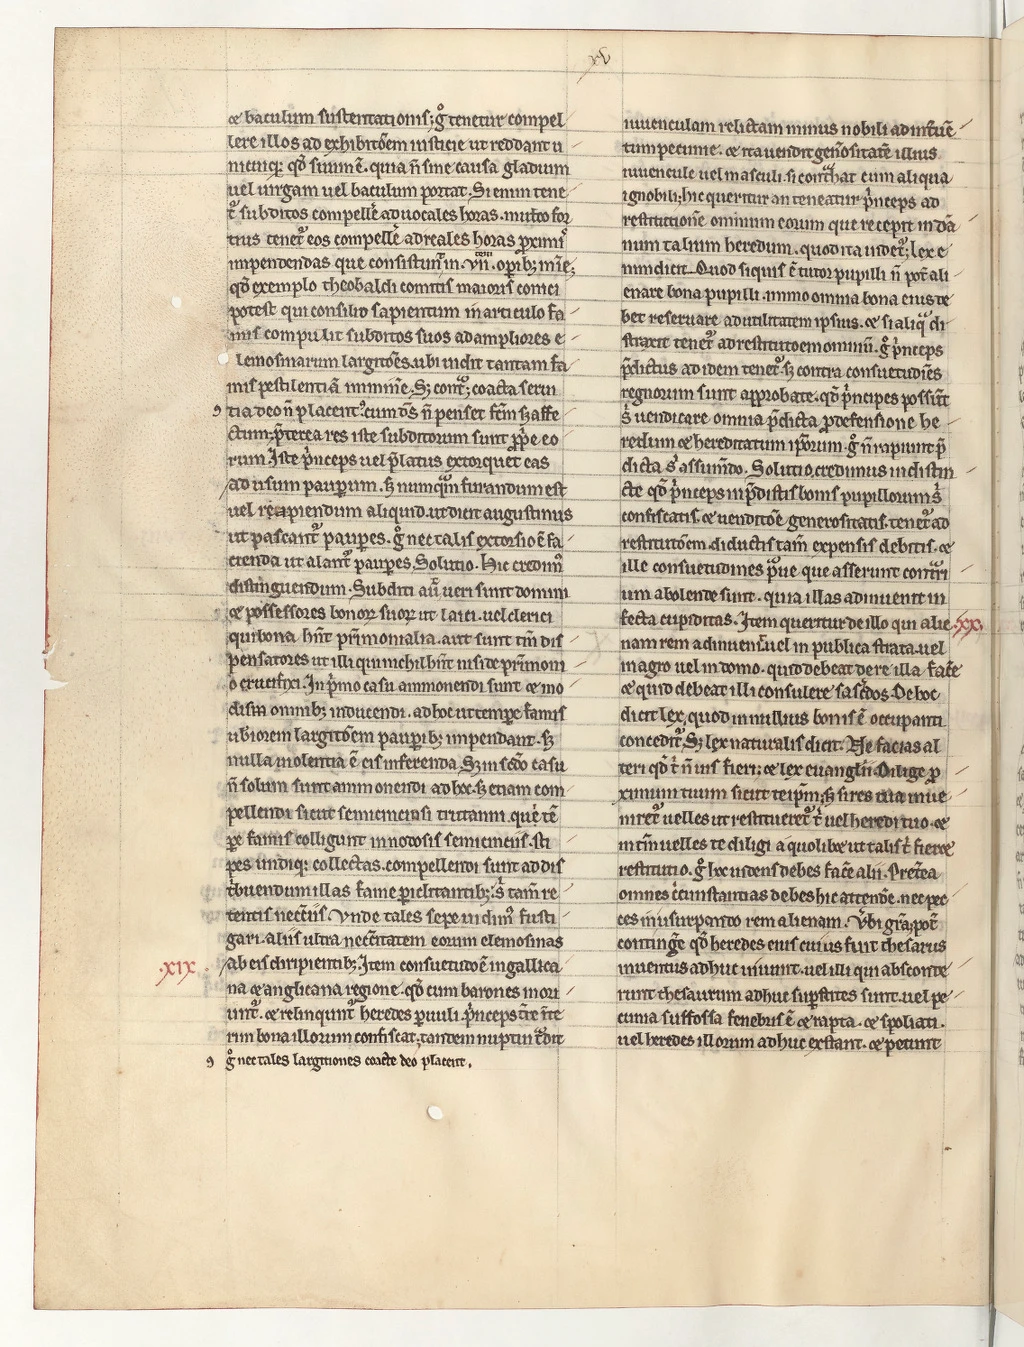 xv
⁊ baculum sustentationis; gͦ tenetur compel
lere illos ad exhibitōem iusticie ut reddant u
nicuiqꝫ qd̄ suum ē. quia n̄ sine causa gladium
uel uirgam uel baculum portat. Si enim tene
t᷑ subditos compellē ad uocales horas. multo for
tius tenet᷑ eos compellē ad reales horas proximi
impendendas que consistunt in .vii. opibꝫ mīe;
qd̄ exemplo theobaldi comitis maioris comei
potest qui consilio sapientum in articulo fa
mis compulit subditos suos ad ampliores e
lemosinarum largitōes. ubi uidit tantam fa
mis pestilentiā imminē. Sꝫ cont͛; coacta serui
tia deo n̄ placent. cum dn̄s n̄ penset scm̄ sꝫ affe
ctum; p̄terea res iste subditorum sunt ꝓp̄e eo
rum. Iste p̄nceps uel p̄latus extorquet eas
ad usum pauꝑum. sꝫ numqm̄ furandum est
uel recipiendum aliquid. ut dicit augustinus
ut pascant᷑ pauꝑes. gͦ nec talis extorsio ē fa
cienda ut alant᷑ pauꝑes. Solutio. Hic credim᷒
distinguendum. Subditi aū ueri sunt domini
⁊ possessores bonoꝝ suoꝝ ut laici. uel clerici
qui bona hn̄t p̄rimonialia. aut sunt tm̄ dis
pensatores ut illi qui nichil hn̄t nisi de p̄rimoni
o crucifixi. In p̄mo casu ammonendi sunt ⁊ mo
dis omnibꝫ inducendi. ad hoc ut tempe famis
ubiorem largitōem pauꝑibꝫ impendant. sꝫ
nulla uiolentia ē eis inferenda. Sꝫ in scdo casu
n̄ solum sunt ammonendi ad hoc. sꝫ etiam com
pellendi sicut
pe famis colligunt
pes undiqꝫ collectas. compellendi sunt ad dis
t̄buendum illas fame ꝑiclitantibꝫ; s̄ tam̄ re
tentis nec̄c̄iis. Vnde tales sepe uidim᷒ fusti
gari. aliis ultra nec̄c̄itatem eorum elemosinas
.xix. ab eis diripientibꝫ. Item consuetudo ē in gallica
na ⁊ anglicana regione. qd̄ cum barones mori
unt᷑. ⁊ relinqunt᷑ heredes paruuli. p̄nceps tr̄e
rim bona illorum confiscat; tandem nuptui t̄dit
gͦ nec tales largitiones coacte deo placent.
iuuenculam relictam minus nobili ad
tum pecunie. ⁊ ita uendit gen̄ositatē illius
iuuencule uel masculi. si cont͛hat cum aliqua
ignobili; hic queritur an teneatur p̄nceps ad
restitutionē omnium eorum que recepit in dā
num talium heredum. quod ita uidet᷑; lex e
nim dicit. Quod siquis ē tutor pupilli n̄ pot̄ ali
enare bona pupilli. immo omnia bona eius de
bet reseruare ad utilitatem ipsius. ⁊ si aliqͣ di
straxit tenet᷑ ad restitutōem omniū. gͦ p̄nceps
p̄dictus ad idem tenet᷑. sꝫ contra consuetudīes
regnorum sunt approbate. qd̄ p̄ncipes possunt
s̄ uendicare omnia p̄dicta ꝓ defensione he
redum ⁊ hereditatum ip̄orum. gͦ n̄ rapiunt p̄
dicta s̄ assumēdo. Solutio. credimus in distin
cte qd̄ p̄nceps in p̄dictis bonis pupillorum s̄
confiscatis. ⁊ uenditōe generositatis. tenet᷑ ad
restitutōem. diductis tam̄ expensis debitis. ⁊
ille consuetudines p̄ue que asserunt cont͛ri
um abolende sunt. quia illas adinuenit in
fecta cupiditas. Item queritur de illo qui alie .xx.
nam rem adinuenit. uel in publica strata. uel
in agro uel in domo. quid debeat de re illa facē
⁊ quid debeat illi consulere sac̄dos. De hoc
dicit lex, quod in nullius bonis ē occupanti
concedit᷑. Sꝫ lex naturalis dicit. Ne facias al
teri qd̄ t̄ n̄ uis fieri; ⁊ lex euangelii. Dilige ꝓ
ximum tuum sicut teip̄m; sꝫ si res tua inue
niret᷑ uelles ut restitueret᷑ t̄ uel heredi tuo. ⁊
in tm̄ uelles te diligi a quolibet ut talis t̄ fieret
restitutio. gͦ hoc uidens debes facē alii. Pret̄ea
omnes c̄cunstantias debes hic attendē. nec pec
ces in usurpando rem alienam. Vbi gr̄a; pot̄
contingē qd̄ heredes eius cuius fuit thesarus
inuentus adhuc uiuunt. uel illi qui absconde
runt thesaurum adhuc suꝑstites sunt. uel pe
cunia suffossa fenebris ē ⁊ rapta. ⁊ spoliati.
uel heredes illorum adhuc exstant. ⁊ petunt